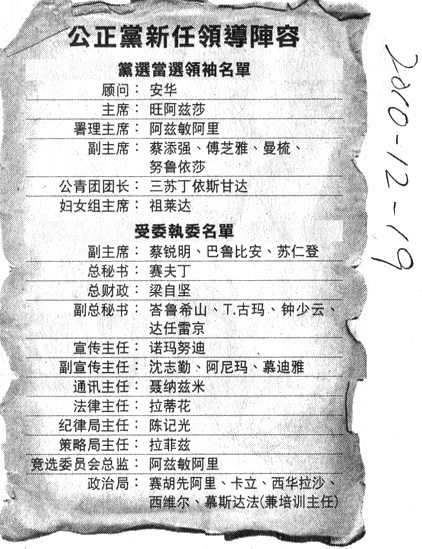 公正黨新任領導陣容
黨選當選領袖名單
顾问：安华
主席：旺阿兹莎
署理主席：阿兹敏阿里
副主席：蔡添强、傅芝雅、曼梳、
努鲁依莎
公青团团长：三苏丁依斯甘达
妇女组主席：祖莱达
受委執委名單
副主席：蔡锐明、巴鲁比安、苏仁登
总秘书：赛夫丁
总财政：梁自坚
副总秘书：峇鲁希山、T.古玛、钟少云、
达任雷京
宣传主任：诺玛努迪
副宣传主任：沈志勤、阿尼玛、慕迪雅
通讯主任：聂纳兹米
法律主任：拉蒂花
纪律局主任：陈记光
策略局主任：拉菲兹
竞选委员会总监：阿兹敏阿里
政治局：赛胡先阿里、卡立、西华拉沙、
西维尔、慕斯达法(兼培训主任)
2010-12-19